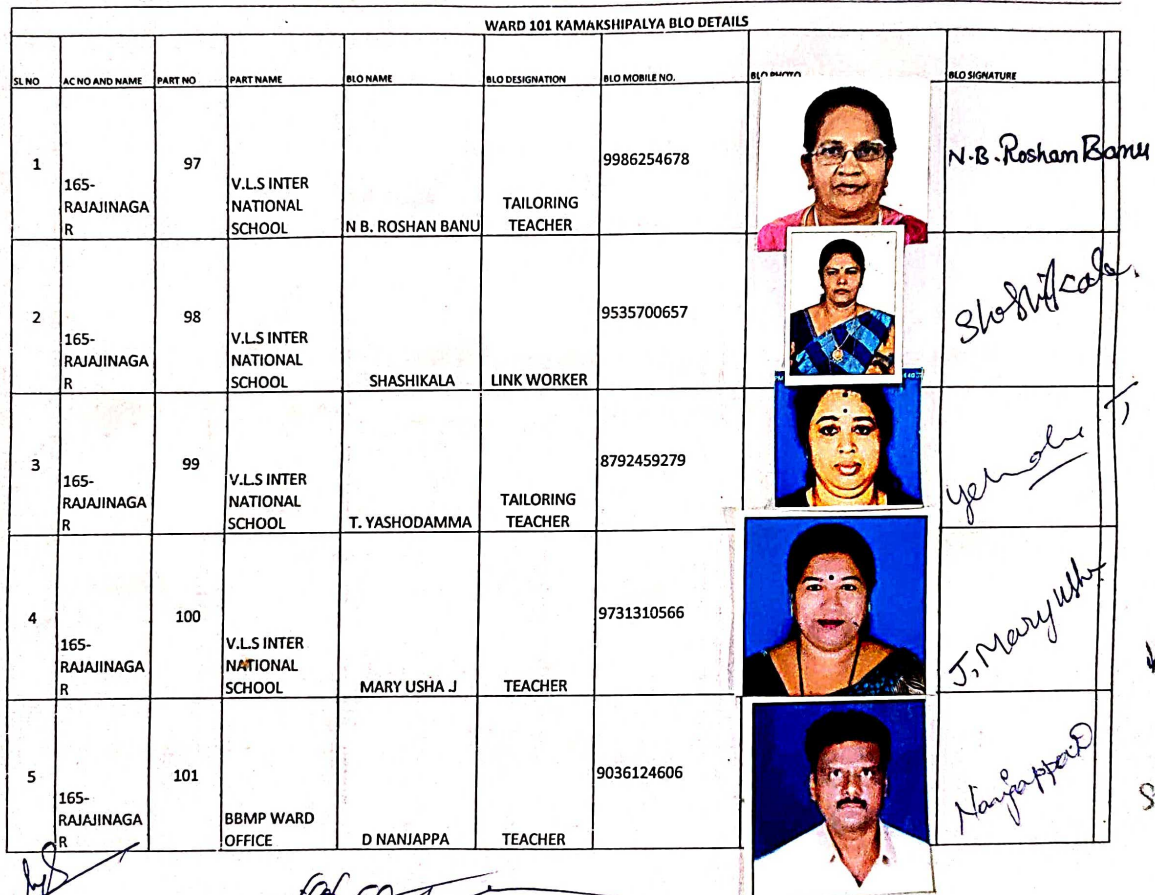 WARD 101 KAMAKSHIPALYA BLO DETAILS
SL NO AC NO AND NAME PART NO PART NAME BLO NAME BLO DESIGNATION BLO MOBILE NO. BLO PHOTO BLO SIGNATURE
1 165-RAJAJINAGA
R 97 V.L.S INTER
NATIONAL
SCHOOL N B. ROSHAN BANU TAILORING
TEACHER 9986254678 N.B. Roshan Banu
2 165-
RAJAJINAGA
R 98 V.L.S INTER
NATIONAL
SCHOOL SHASHIKALA LINK WORKER 9535700657 Shashikala.
3 165-
RAJAJINAGA
R 99 V.L.S INTER
NATIONAL
SCHOOL T. YASHODAMMA TAILORING
TEACHER 8792459279
4 165-
RAJAJINAGA
R 100 V.L.S INTER
NATIONAL
SCHOOL MARY USHA J TEACHER 9731310566 J. Mary usha
5 165-
RAJAJINAGA
R 101 BBMP WARD
OFFICE D NANJAPPA TEACHER 9036124606 Nanjappa.D